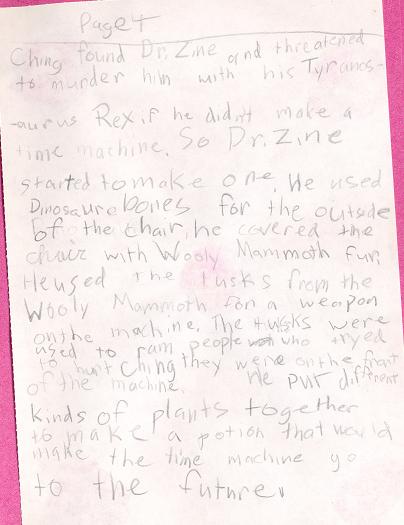 Page 4
Ching found Dr. Zine and threatened
to murder him with his Tyranos-
-aurus Rex if he didn't make a
time machine. So Dr. Zine
started to make one. He used
Dinosaure bones for the outside
of the chair, he covered the
chair with Wooly Mammoth fur.
He used the tusks from the
Wooly Mammoth for a weapon
on the machine. The tusks were
used to ram people who tryed
to hurt Ching they were on the front
of the machine. He put different
kinds of plants together
to make a potion that would
make the time machine go
to the future.